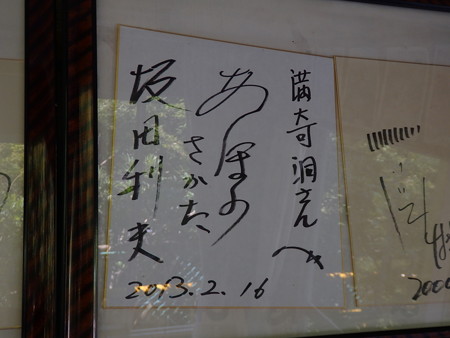 満奇洞さんへ
あほの
さかた
坂田利夫
2013.2.16
200